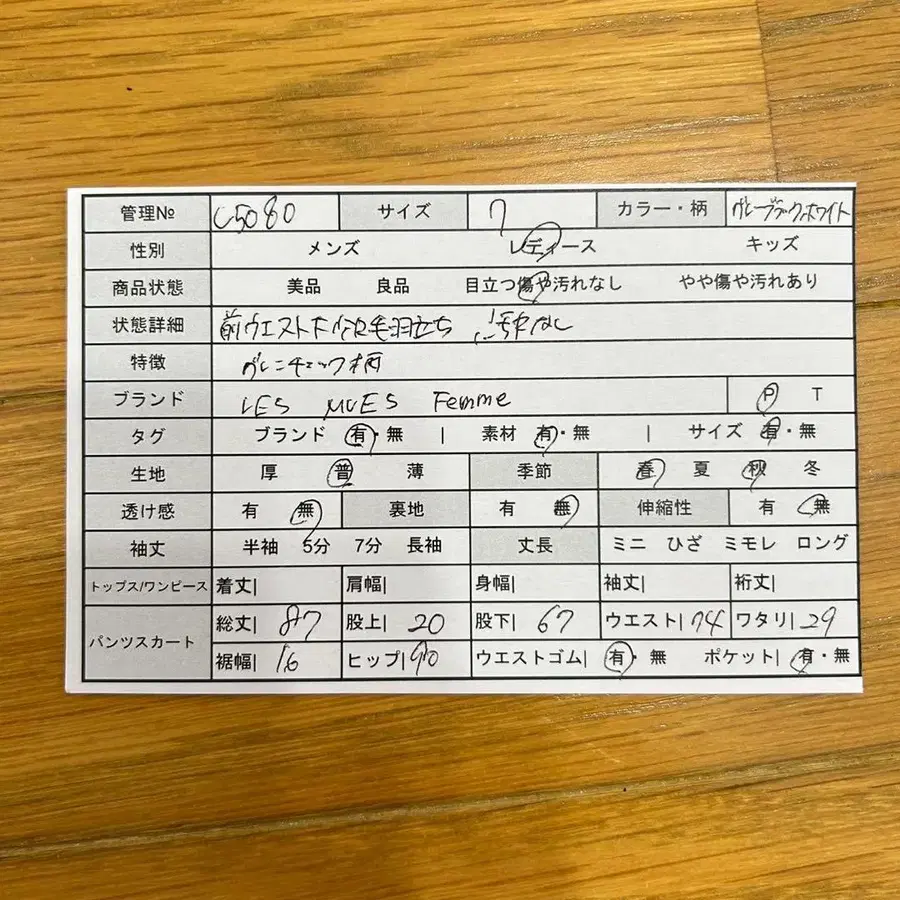 管理№ C5080 サイズ 7 カラー・柄 グレーブラックホワイト
性別 メンズ レディース キッズ
商品状態 美品 良品 目立つ傷や汚れなし やや傷や汚れあり
状態詳細 前ウエスト下少々毛羽立ち なし
特徴 グレンチェック柄
ブランド LES MUES Femme P T
タグ ブランド 有・無 | 素材 有・無 | サイズ 有・無
生地 厚 普 薄 季節 春 夏 秋 冬
透け感 有 無 裏地 有 無 伸縮性 有 無
袖丈 半袖 5分 7分 長袖 丈長 ミニ ひざ ミモレ ロング
トップス/ワンピース 着丈| 肩幅| 身幅| 袖丈| 裄丈|
パンツスカート 総丈| 87 股上| 20 股下| 67 ウエスト| 74 ワタリ| 29
裾幅| 16 ヒップ| 90 ウエストゴム| 有・無 ポケット| 有・無